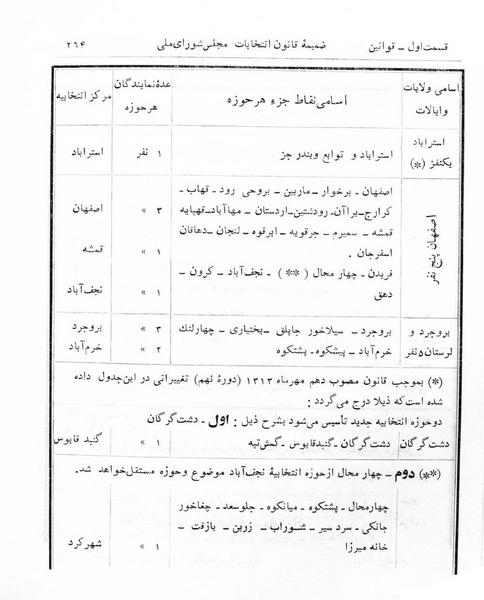 قسمت اول ــ قوانین ضمیمهٔ قانون انتخابات مجلس شورای ملی ۲۶۴
اسامی ولایات وایالات اسامی نقاط جزء هرحوزه عدهٔ نمایندگان هرحوزه مرکز انتخابیه
استراباد یکنفر (*) استراباد و توابع وبندر جز ۱ نفر استراباد
اصفهان پنج نفر
اصفهان ــ برخوار ــ ماربین ــ بروحی رود ــ قهاب ــ
کرارج ــ براآن ــ رودشتین ــ اردستان ــ مهاآباد ــ قهپایه ۳ » اصفهان
قمشه ــ سمیرم ــ جرقویه ــ ابرقوه ــ لنجان ــ دهاقان
اسفرجان . ۱ » قمشه
فریدن ــ چهار محال (**) ــ نجف‌آباد ــ کرون ــ
دهق ۱ » نجف‌آباد
بروجرد و بروجرد ــ سیلاخور جاپلق ــ بختیاری ــ چهارلنك ۳ » بروجرد
لرستان ۵ نفر خرم‌آباد ــ پیشکوه ــ پشتکوه ۲ » خرم‌آباد
(*) بموجب قانون مصوب دهم مهرماه ۱۳۱۲ (دورهٔ نهم) تغییراتی در این‌جدول داده
شده است‌که ذیلا درج میگردد :
دوحوزه انتخابیه جدید تأسیس می‌شود بشرح ذیل : اول ــ دشت‌گرگان
دشت گرگان دشت‌گرگان ــ گنبدقابوس ــ گمش‌تپه ۱ » گنبد قابوس
(**) دوم ــ چهار محال ازحوزه انتخابیهٔ نجف‌آباد موضوع وحوزه مستقل‌خواهد شد.
چهارمحال ــ پشتکوه ــ میانکوه ــ جلوسعد ــ چغاخور
جانکی ــ سرد سیر ــ شوراب ــ زرین ــ بازفت ــ
خانه میرزا ۱ » شهرکرد